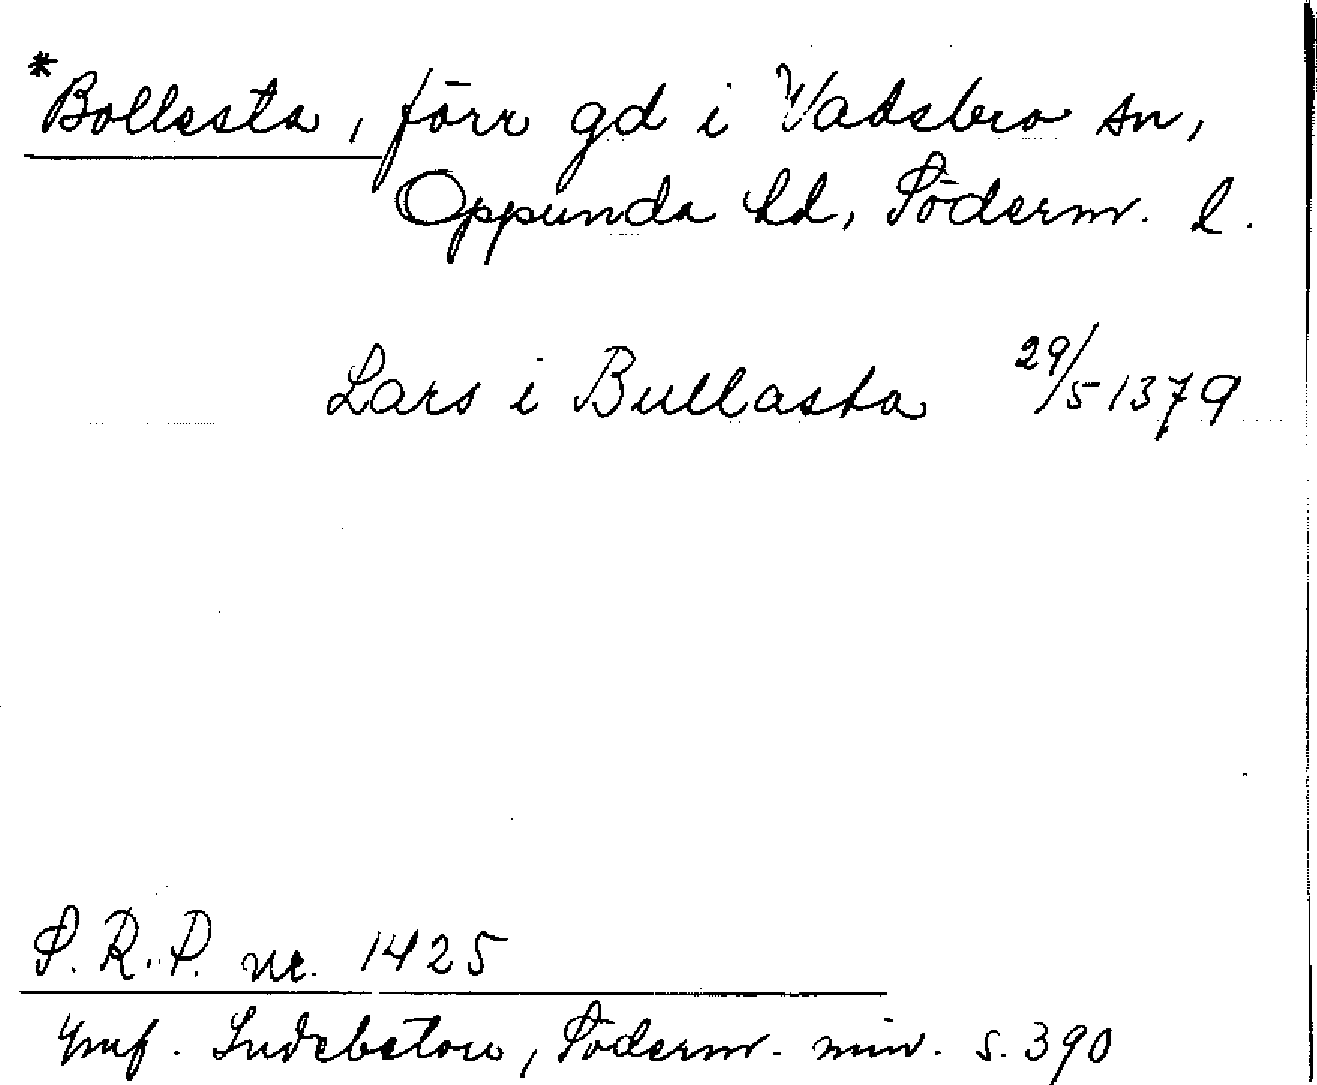 *Bollesta, förr gd i Vadsbro sn,
Oppunda hd, Söderm. l.
Lars i Bullasta 29/5 1379
S.R.P. nr. 1425
Jmf. Indebetou, Söderm. min. s. 390